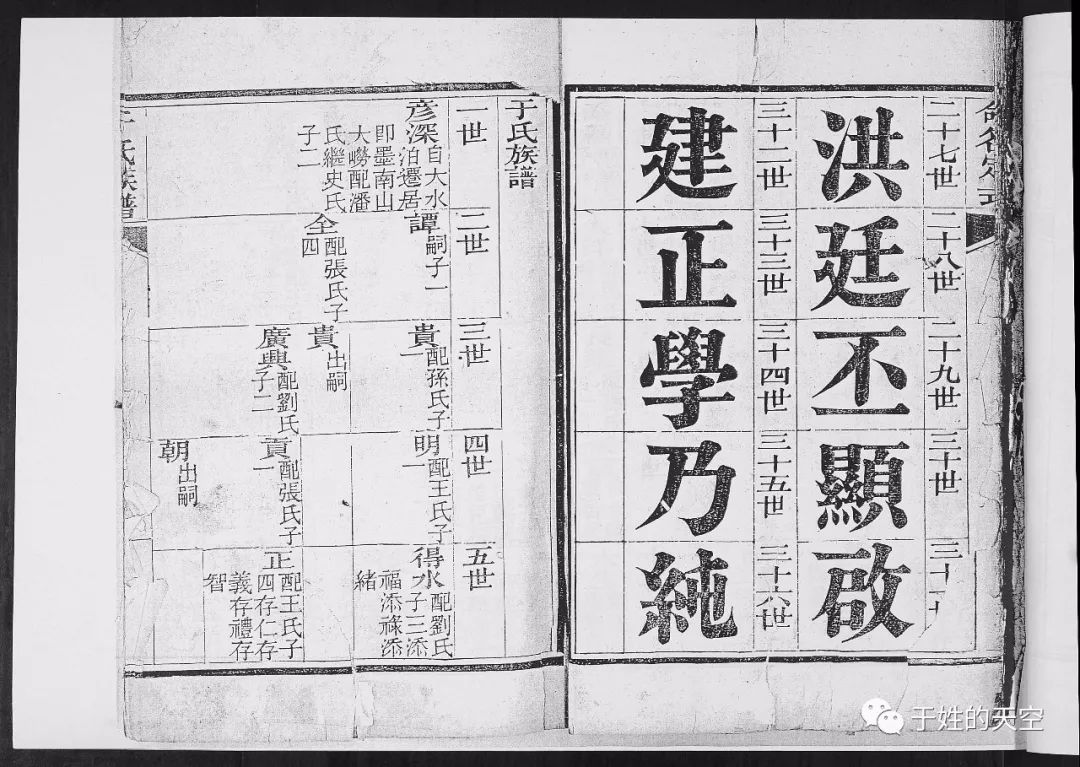 二十七世
二十八世
二十九世
三十世
洪廷丕顯啟
三十二世
三十三世
三十四世
三十五世
三十六世
建正學乃純
于氏族譜
一世
二世
三世
四世
五世
彦深自大水
泊遷居
即墨南山
大嶗配潘
氏繼史氏
子二
譚嗣子一
仝配張氏子
四
貴配孫氏子
一
貴出嗣
廣興配劉氏
子二
明配王氏子
一
貢配張氏子
一
朝出嗣
得水配劉氏
子三添
福添祿添
緒
正配王氏子
四存仁存
義存禮存
智
氏族譜
于姓的天空